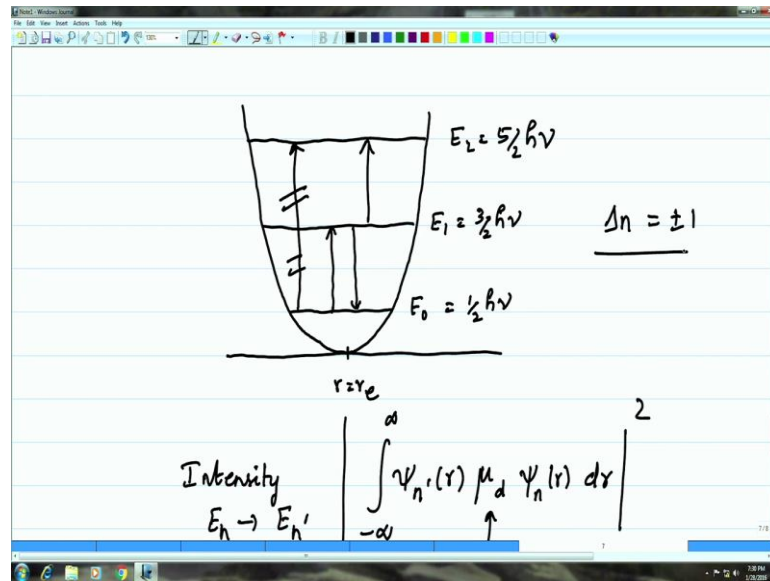 Note1 - Windows Journal
File Edit View Insert Actions Tools Help
E₂ = 5/2 hν
E₁ = 3/2 hν
Δn = ±1
E₀ = 1/2 hν
r = rₑ
Intensity
Eₙ → Eₙ'
| ∫_{-∞}^{∞} ψₙ'(r) μ_d ψₙ(r) dr |²
7
7:30 PM